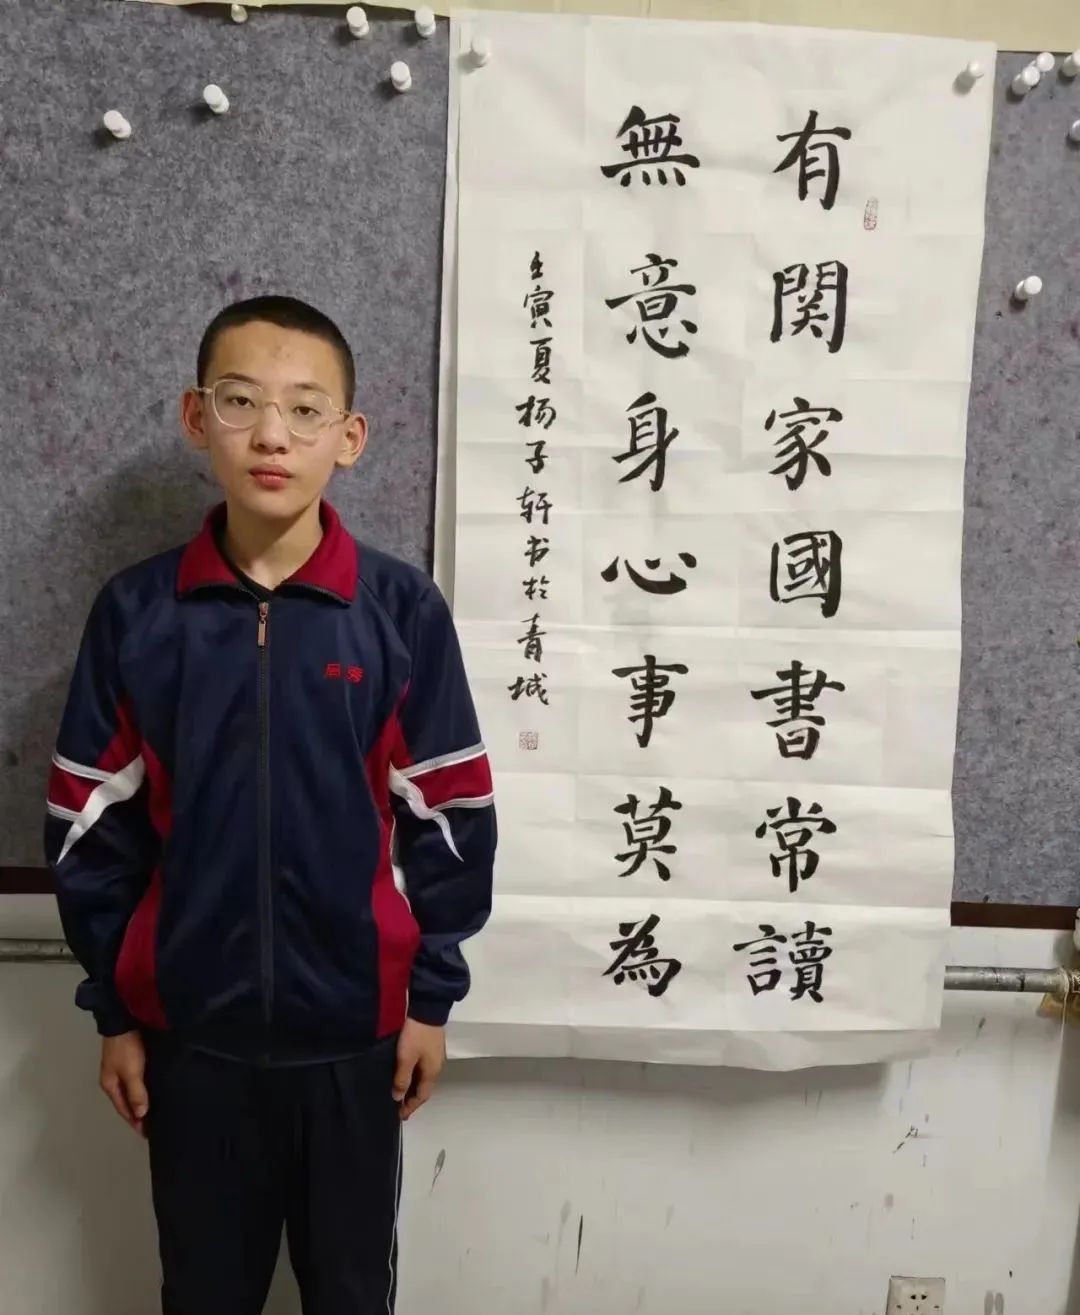 有関家國書常讀
無意身心事莫為
壬寅夏杨子轩书於青城